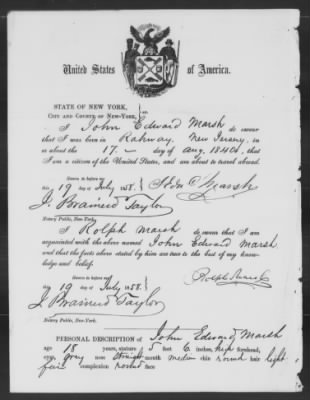 United States of America.
STATE OF NEW YORK,
CITY AND COUNTY OF NEW-YORK, } ss.
I John Edward Marsh do swear
that I was born in Rahway, New Jersey, in
or about the 17 day of Aug. 1840, that
I am a citizen of the United States, and am about to travel abroad.
Sworn to before me
this 19 day of July 1858. Marsh
J. Brainerd Taylor
Notary Public, New-York.
I Rolph Marsh do swear that I am
acquainted with the above named John Edward Marsh
and that the facts above stated by him are true to the best of my know-
ledge and belief.
Sworn to before me Rolph Marsh
19 day of July 1858.
J. Brainerd Taylor
Notary Public, New-York.
PERSONAL DESCRIPTION of John Edward Marsh
age 18 years, stature 5 feet 6 inches, high forehead,
gray nose straight mouth medium chin round hair light
fair complexion round face